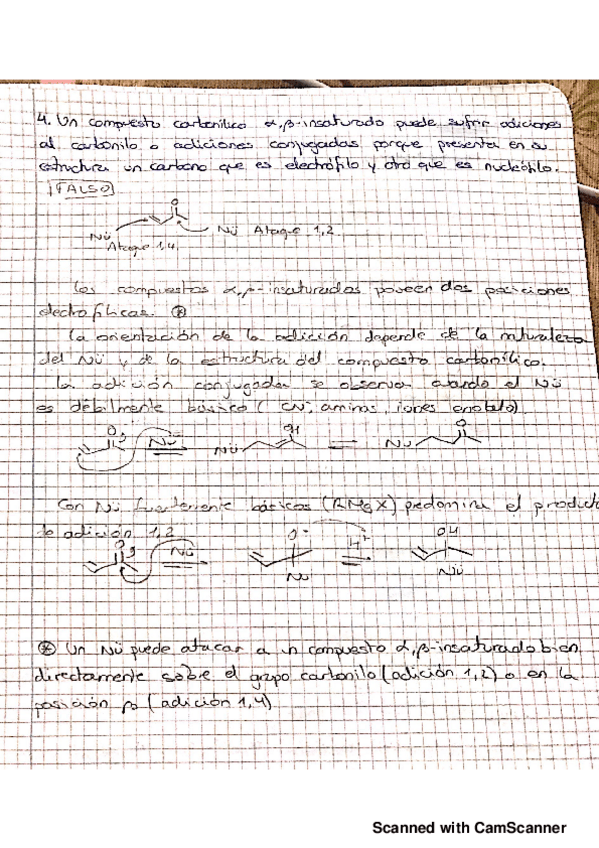 4. Un compuesto carbonílico α,β-insaturado puede sufrir adiciones
al carbonilo o adiciones conjugadas porque presenta en su
estructura un carbono que es electrófilo y otro que es nucleófilo.
FALSO
O
Nü Nü Ataque 1,2
Ataque 1,4.
Los compuestos α,β-insaturados poseen dos posiciones
electrofílicas. ⊛
La orientación de la adición depende de la naturaleza
del Nü y de la estructura del compuesto carbonílico.
La adición conjugada se observa cuando el Nü
es débilmente básico (CN⁻, aminas, iones enolato)
O Nü⁻ Nü OH Nü O
Con Nü fuertemente básicos (RMgX) predomina el producto
de adición 1,2
O Nü O⁻ H⁺ OH
Nü Nü
⊛ Un Nü puede atacar a un compuesto α,β-insaturado bien
directamente sobre el grupo carbonilo (adición 1,2) o en la
posición β (adición 1,4)
Scanned with CamScanner